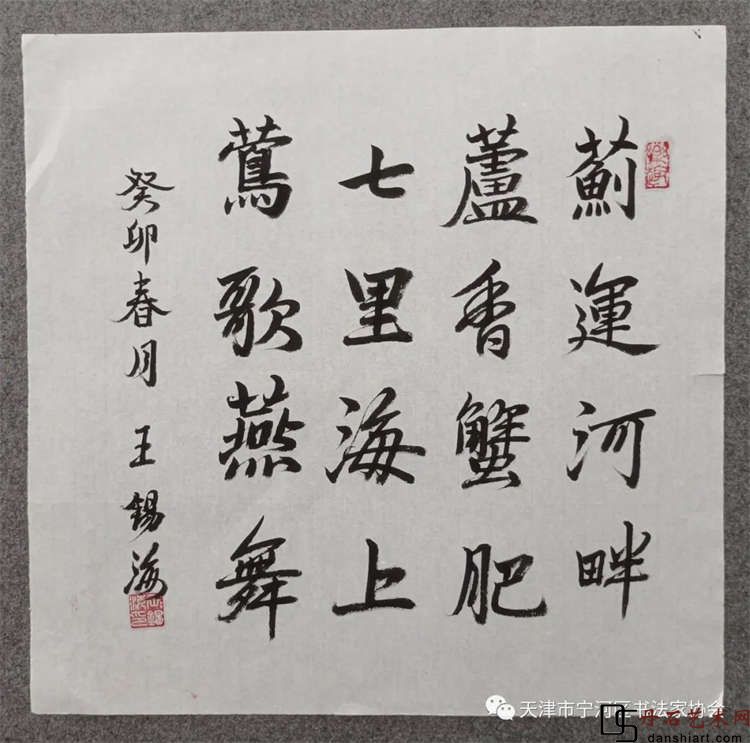 薊運河畔
蘆香蟹肥
七里海上
鶯歌燕舞
癸卯春月 王錫海
天津市宁河区书法家协会
丹石艺术网
danshiart.com